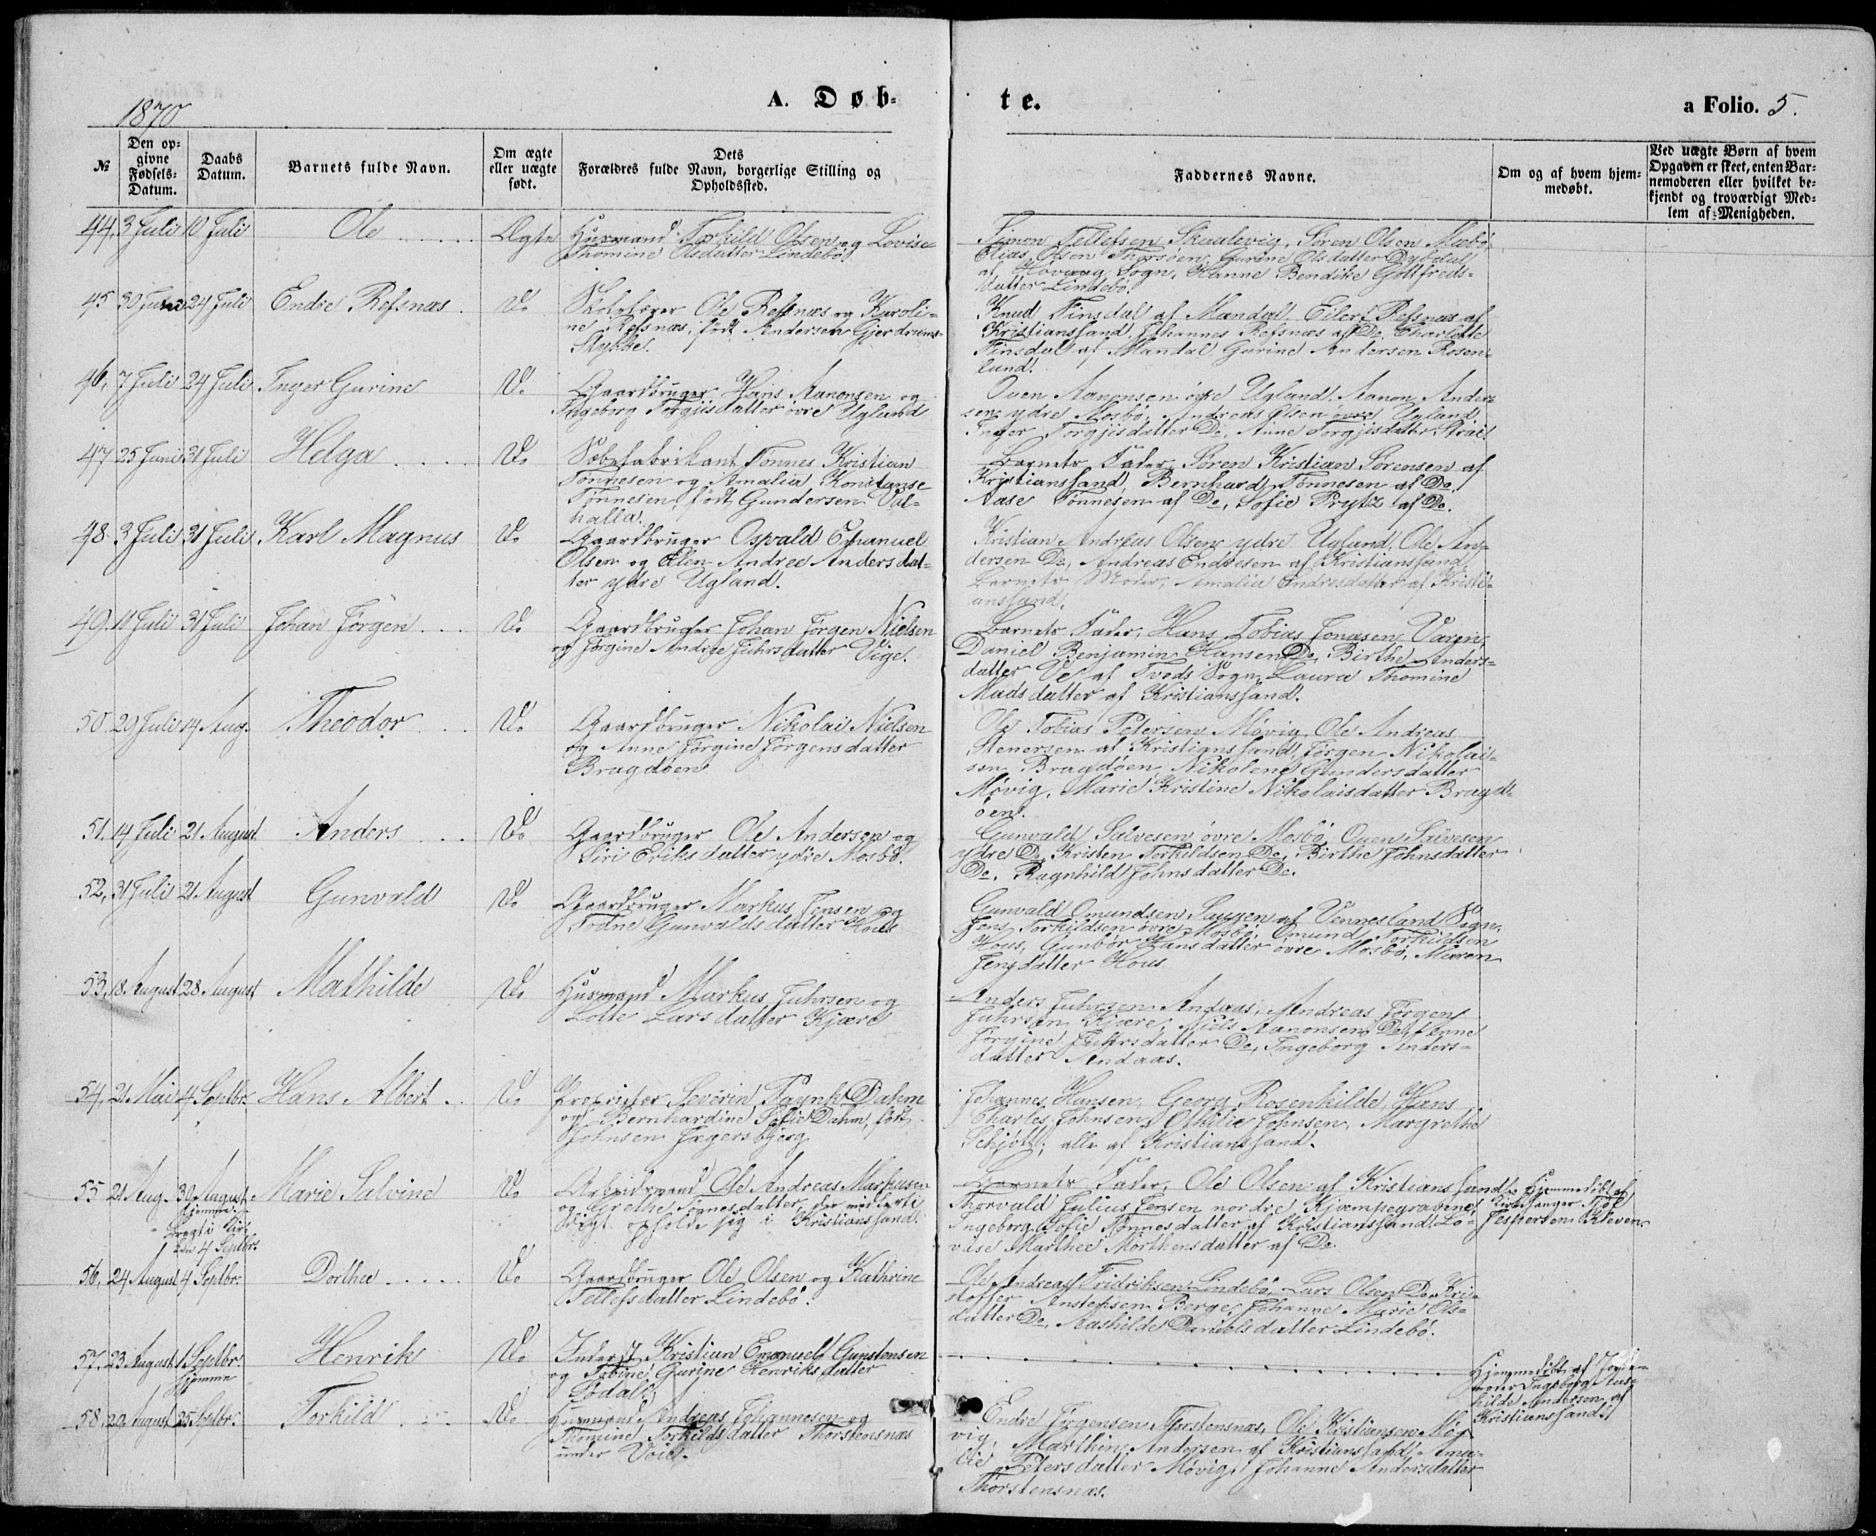 1870
A. Døb-
te.
a Folio. 5.
№
Den op-
givne
Fødsels-
Datum.
Daabs
Datum.
Barnets fulde Navn.
Om ægte
eller uægte
født.
Dets
Forældres fulde Navn, borgerlige Stilling og
Opholdssted.
Faddernes Navne.
Om og af hvem hjem-
medøbt.
Ved uægte Børn af hvem
Opgaven er skeet, enten Bar-
nemoderen eller hvilket be-
kjendt og troværdigt Med-
lem af Menigheden.
44. 3 Juli 10 Juli Ole Ægte
Husmand Torkild Olsen og Lovise
Thomine Olsdatter Lindebø
Simon Tellefsen Skualevig, Søren Olsen Mæbø
Elias Olsen Thorsøen, Gurine Olsdatter Dybdal
af Høvaag Sogn, Hanne Bendike Gottfreds-
datter Lindebø.
45 30 Juni 24 Juli Endre Refsnæs Do
Skoleholder Ole Refsnæs og Karoli-
ne Refsnæs, født Andersen Gjerdrums-
Stykke.
Knud Finsdal af Mandal, Eilert Refsnæs af
Kristianssand, Johannes Refsnæs af Do, Charlotte
Finsdal af Mandal, Gurine Andersen Rosen-
lund.
46. 7 Juli 24 Juli Inger Gurine Do
Gaardbruger Hans Aanonsen og
Ingeborg Torgjisdatter øvre Ugland
Ouen Aanonsen øvre Ugland, Aanon Ander-
sen ydre Mosbø, Andreas Olsen øvre Ugland
Inger Torgjisdatter Do, Anne Torgjisdatter Strai.
47 25 Juni 31 Juli Helga Do
Sæbefabrikant Tønnes Kristian
Tønnesen og Amalia Konstanse
Tønnesen, født Gundersen Val-
halla.
Barnets Fader, Søren Kristian Sørensen af
Kristianssand, Bernhard Tønnesen af Do,
Aase Tønnesen af Do, Sofie Prytz af Do.
48 3 Juli 31 Juli Karl Magnus Do
Gaardbruger Osvald Emanuel
Olsen og Elen Andrea Andersdat-
ter ydre Ugland.
Kristian Andreas Olsen ydre Ugland, Ole An-
dersen Do, Andreas Endresen af Kristianssand,
Barnets Moder, Amalia Endresdatter af Kristi-
anssand.
49. 11 Juli 31 Juli Johan Jørgen Do
Gaardbruger Johan Jørgen Nielsen
og Jørgine Andrea Fuhrsdatter Vige.
Barnets Fader, Hans Tobias Jonasen Vaagen,
Daniel Benjamin Hansen Do, Birthe Anders-
datter Ve af Tveds Sogn, Laura Thomine
Madsdatter af Kristianssand.
50 20 Juli 14 Aug. Theodor Do
Gaardbruger Nikolai Nielsen
og Anne Jørgine Jørgensdatter
Bragdøen
Ole Tobias Petersen Møvig, Ole Andreas
Stenersen af Kristianssand, Jørgen Nikolai-
sen Bragdøen, Nikolene Gundersdatter
Møvig, Marie Kristine Nikolaisdatter Bragd-
øen.
51. 14 Juli 21 August Anders Do
Gaardbruger Ole Andersen og
Siri Eriksdatter ydre Mosbø.
Gunvald Salvesen øvre Mosbø, Ouen Salvesen
ydre Do, Kristen Torkildsen Do, Birthe Johnsdatter
Do, Ragnhild Johnsdatter Do.
52. 31 Juli 21 August Gunvald Do
Gaardbruger Markus Jensen og
Todne Gunvaldsdatter Hous
Gunvald Omundsen af Vennesland Sogn,
Jens Torkildsen øvre Mosbø, Omund Torkildsen
Hous, Gunbor Hansdatter øvre Mosbø, Maren
Jensdatter Hous
53. 18 August 28 August Mathilde Do
Husmand Markus Fuhrsen og
Lotte Larsdatter Kjære
Anders Fuhrsen Andaas, Andreas Jørgen
Fuhrsen Kjære, Niels Aanonsen Do, Anne
Jørgine Fuhrsdatter Do, Ingeborg Anders-
datter Andaas.
54. 21 Mai 4 Septbr. Hans Albert Do
Proprietær Severin Dahm
og Bernhardine Sofie Dahm, født
Johnsen Jægersbjerg
Johannes Hansen, Georg Rosenkilde, Hans
Charles Johnsen, Othilie Johnsen, Margrethe
Schjøtt, alle af Kristianssand.
55 21 Aug. 30 August Marie Salvine Do
hjemme
Bragt i Kirke
den 4 Septbr.
Arbeidsmand Ole Andreas Markusen
og Grethe Tognesdatter, der
opholde sig i Kristianssand
Barnets Fader, Ole Olsen af Kristianssand,
Thorvald Julius Jensen nordre Kjæmpegravene,
Ingeborg Sofie Tønnesdatter af Kristianssand, Lo-
vise Marthee Morthensdatter af Do
Hjemmedøbt af
Kirkesanger
Jespersen Kleven
56. 24 August 4 Septbr. Dorthea Do
Gaardbruger Ole Olsen og Kathrine
Tellefsdatter Lindebø.
Ole Andreas Fridriksen Lindebø, Lars Olsen Do, Kri-
stoffer Anstensen Berge, Johanne Marie Ols-
datter Do, Mathilde Danielsdatter Lindebø.
57. 23 August 1 Septbr. Henrik Do
hjemme
Inderst Kristian Emanuel Gunstensen
og Tobine Gurine Henriksdatter
Dødal.
Hjemmedøbt af Jorde-
moder Ingeborg Mat-
hilde Andersen af
Kristianssand.
58. 20 August 25 Septbr. Torkild Do
Husmand Andreas Johannesen og
Thomine Torkildsdatter Thorstensnæs
under Voie.
Endre Jørgensen Thorstensnæs, Ole Kristiansen Mø-
vig, Marthin Andersen af Kristianssand, Ama-
lie Petersdatter Møvig, Johanne Andersdatter
Thorstensnæs.